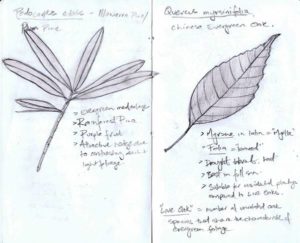 Podocarpus elatus - Illawarra Plum/
Plum Pine
> Evergreen medium tree
> Rainforest Pine
> Purple fruit
> Attractive hedge due
to contrasting dark &
light foliage
Quercus myrsinifolia
Chinese Evergreen Oak.
> Myrsine in Latin = "Myrtle"
> Folia = "leaved"
> Drought tolerant, hardy
> Best in full sun.
> Suitable for residential planting
compared to Live Oaks.
"Live Oak" = number of unrelated oak
species that share the characteristic of
evergreen foliage